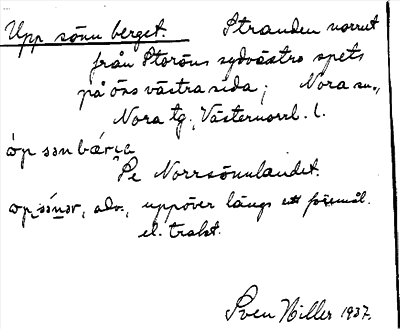 Upp sönu berget. Stranden norrut
från Storöns sydvästra spets
på öns västra sida; Nora sn.,
Nora tg., Västernorrl. l.
òp sən bǽrjə
Se Norrsönulandet.
op sónər, adv., uppöver längs ett föremål.
el. trakt.
Sven Hiller 1937.